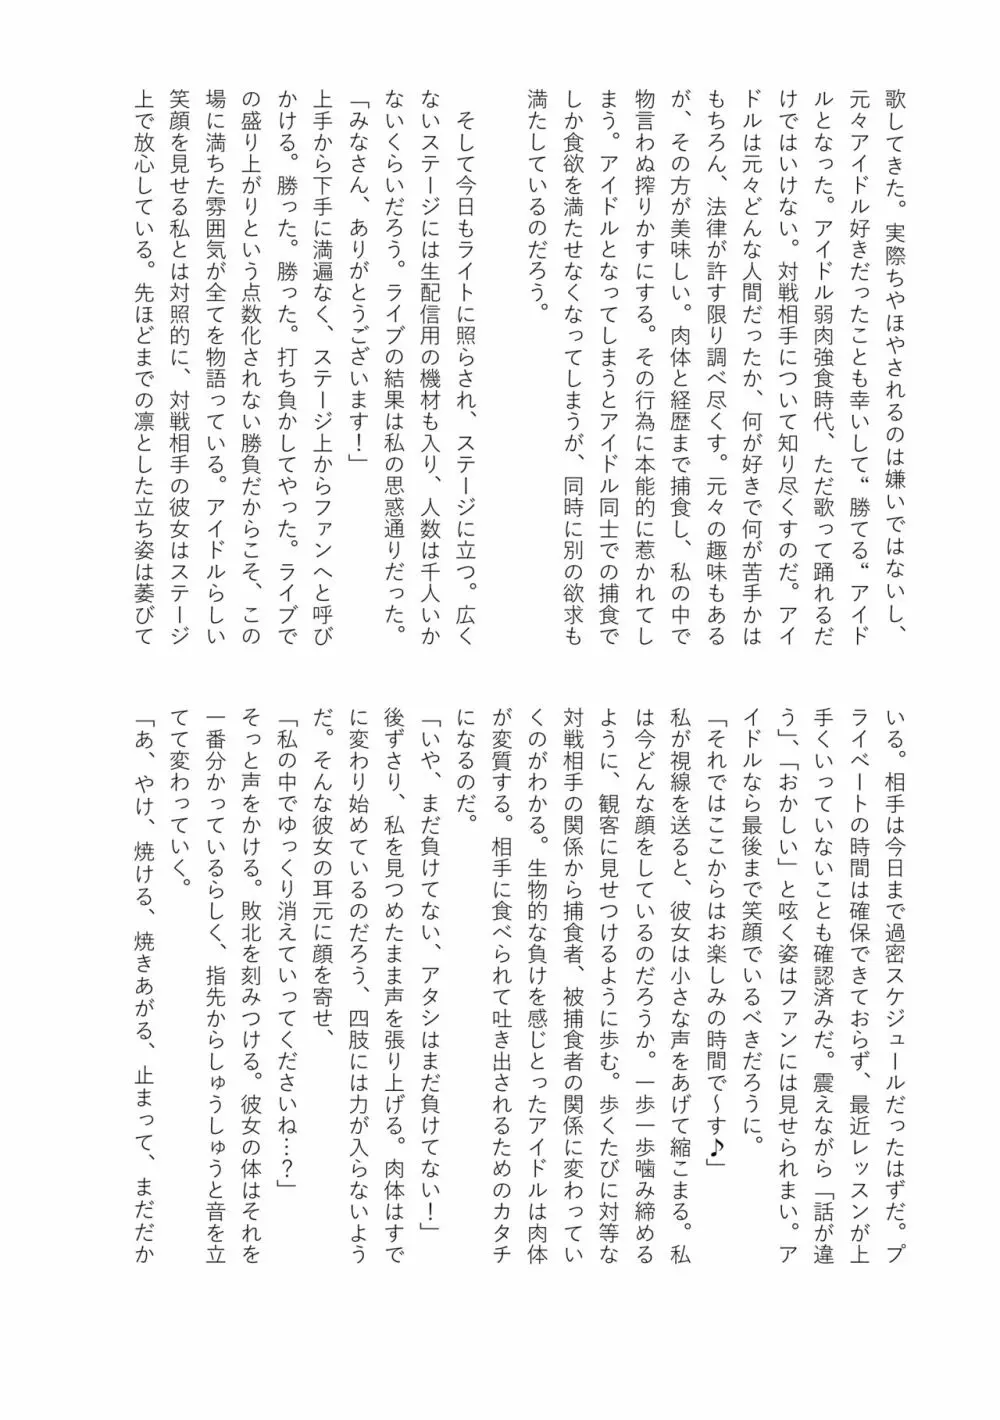 歌してきた。実際ちやほやされるのは嫌いではないし、
元々アイドル好きだったことも幸いして“勝てる“アイド
ルとなった。アイドル弱肉強食時代、ただ歌って踊れるだ
けではいけない。対戦相手について知り尽くすのだ。アイ
ドルは元々どんな人間だったか、何が好きで何が苦手かは
もちろん、法律が許す限り調べ尽くす。元々の趣味もある
が、その方が美味しい。肉体と経歴まで捕食し、私の中で
物言わぬ搾りかすにする。その行為に本能的に惹かれてし
まう。アイドルとなってしまうとアイドル同士での捕食で
しか食欲を満たせなくなってしまうが、同時に別の欲求も
満たしているのだろう。
そして今日もライトに照らされ、ステージに立つ。広く
ないステージには生配信用の機材も入り、人数は千人いか
ないくらいだろう。ライブの結果は私の思惑通りだった。
「みなさん、ありがとうございます！」
上手から下手に満遍なく、ステージ上からファンへと呼び
かける。勝った。勝った。打ち負かしてやった。ライブで
の盛り上がりという点数化されない勝負だからこそ、この
場に満ちた雰囲気が全てを物語っている。アイドルらしい
笑顔を見せる私とは対照的に、対戦相手の彼女はステージ
上で放心している。先ほどまでの凛とした立ち姿は萎びて
いる。相手は今日まで過密スケジュールだったはずだ。プ
ライベートの時間は確保できておらず、最近レッスンが上
手くいっていないことも確認済みだ。震えながら「話が違
う」、「おかしい」と呟く姿はファンには見せられまい。ア
イドルなら最後まで笑顔でいるべきだろうに。
「それではここからはお楽しみの時間で〜す♪」
私が視線を送ると、彼女は小さな声をあげて縮こまる。私
は今どんな顔をしているのだろうか。一歩一歩噛み締める
ように、観客に見せつけるように歩む。歩くたびに対等な
対戦相手の関係から捕食者、被捕食者の関係に変わってい
くのがわかる。生物的な負けを感じとったアイドルは肉体
が変質する。相手に食べられて吐き出されるためのカタチ
になるのだ。
「いや、まだ負けてない、アタシはまだ負けてない！」
後ずさり、私を見つめたまま声を張り上げる。肉体はすで
に変わり始めているのだろう、四肢には力が入らないよう
だ。そんな彼女の耳元に顔を寄せ、
「私の中でゆっくり消えていってくださいね…？」
そっと声をかける。敗北を刻みつける。彼女の体はそれを
一番分かっているらしく、指先からしゅうしゅうと音を立
てて変わっていく。
「あ、やけ、焼ける、焼きあがる、止まって、まだだか